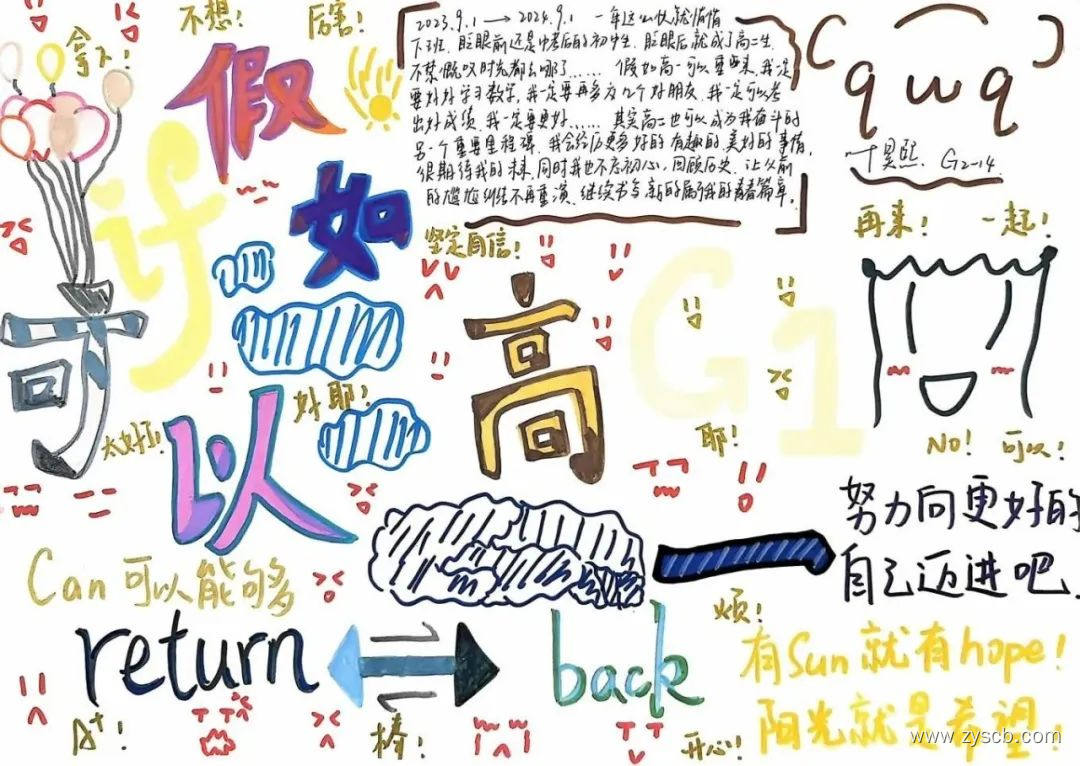 不想!
厉害!
拿下!
假
2023.9.1→2024.9.1 一年这么快就悄悄
下班,眨眼前还是中考后的初中生,眨眼后就成了高二生,
不禁慨叹时光都去哪了……假如高一可以重来,我一定
要好好学习数学,我一定要再多交几个好朋友,我一定可以考
出好成绩,我一定要更好……其实高二也可以成为我奋斗的
另一个重要里程碑,我会经历更多好的有趣的、美好的事情,
很期待我的未来,同时我也不忘初心,回顾历史,让从前
的尴尬纠结不再重演,继续书写新的属于我的青春篇章。
( qwq )
叶昊熙. G2-14
再来!
一起!
if
如
坚定自信!
可
高
G1
以
好耶!
太好了!
耶!
No!
可以!
一
努力向更好的
自己迈进吧.
Can 可以能够
return
back
烦!
有Sun就有hope!
阳光就是希望!
A+!
棒!
开心!
www.zyscb.com